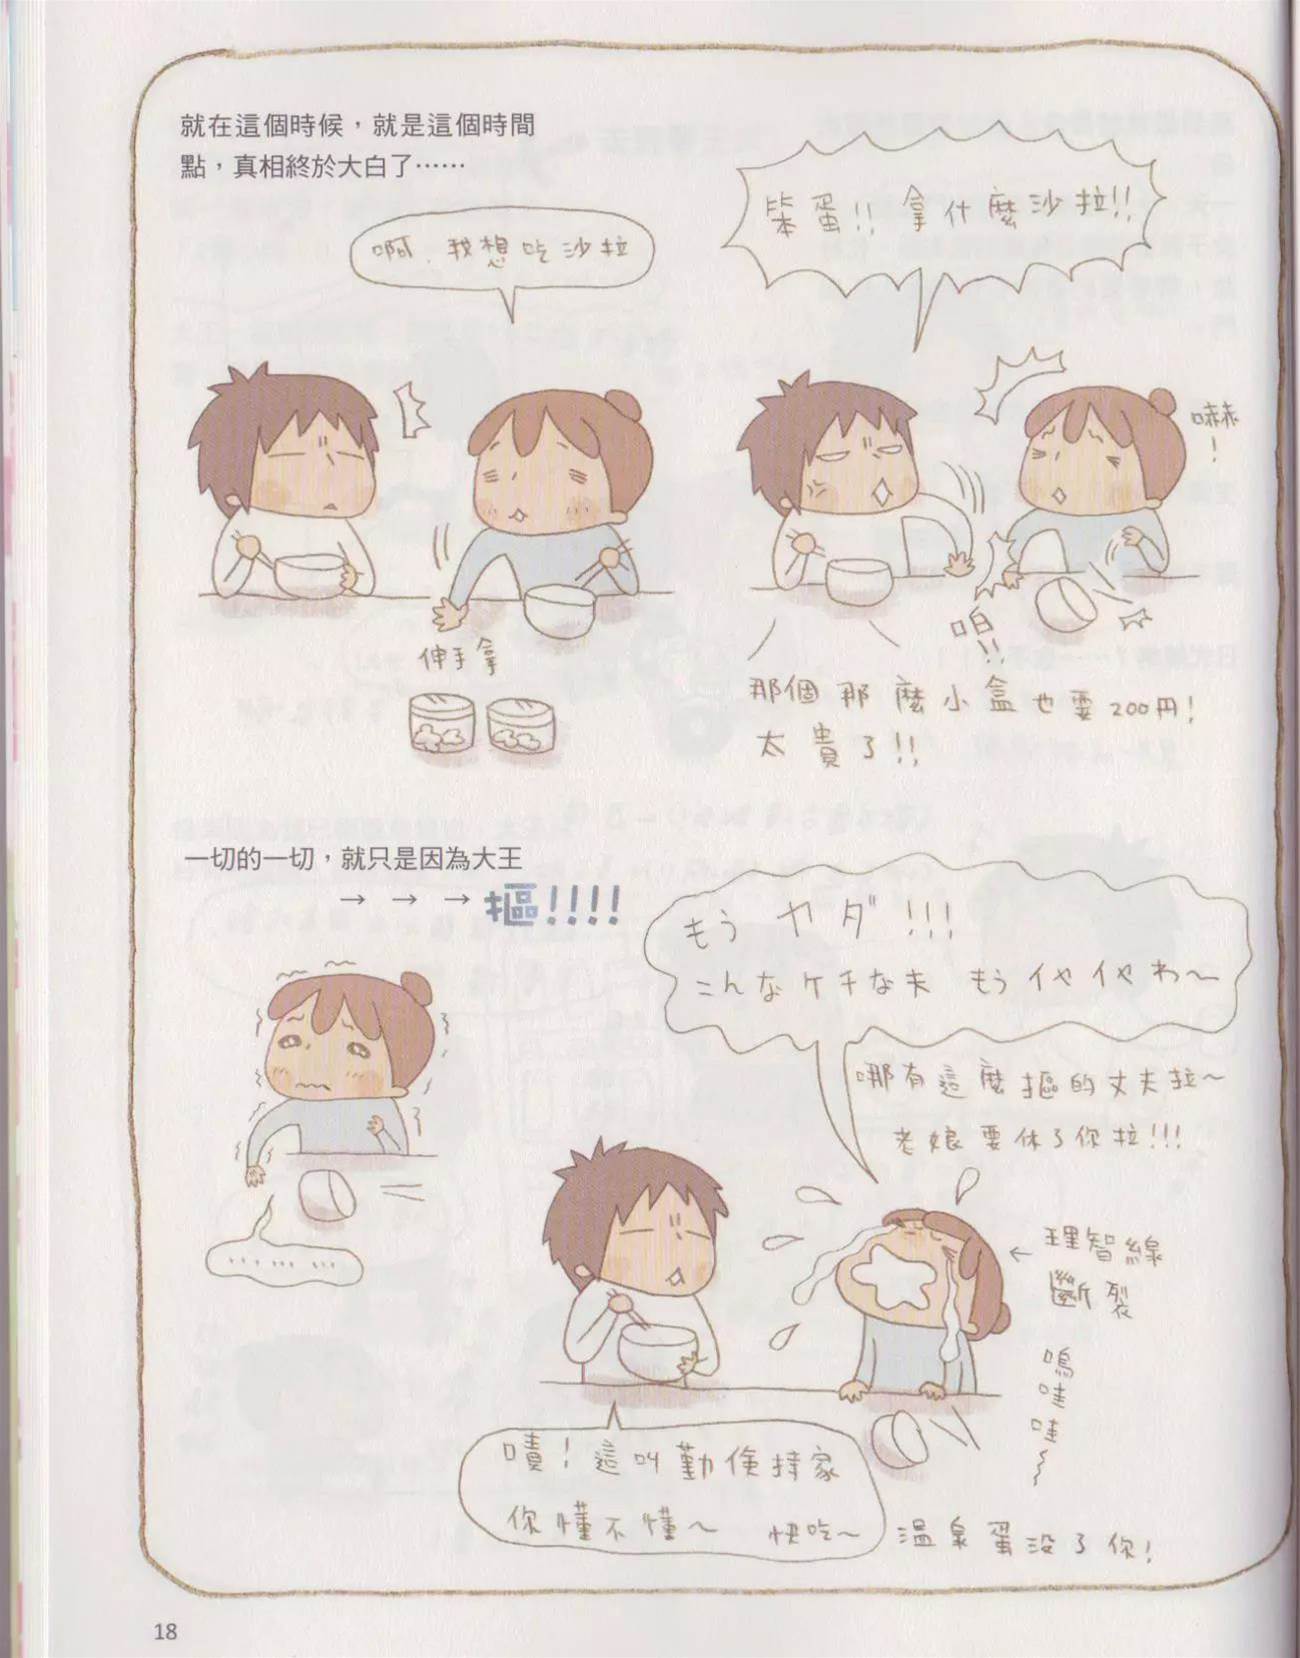 就在這個時候，就是這個時間
點，真相終於大白了……
啊．我想吃沙拉
伸手拿
笨蛋!! 拿什麼沙拉!!
嚇
!
啪
!!
那個那麼小盒也要200円!
太貴了!!
一切的一切，就只是因為大王
→ → → 摳!!!!
………
もう ヤダ!!!
こんなケチな夫 もうイヤイヤわ〜
哪有這麼摳的丈夫拉~
老娘要休了你拉!!!
← 理智線
斷裂
嗚哇哇~
嘖！這叫勤儉持家
你懂不懂~ 快吃~
溫泉蛋沒了你!
18